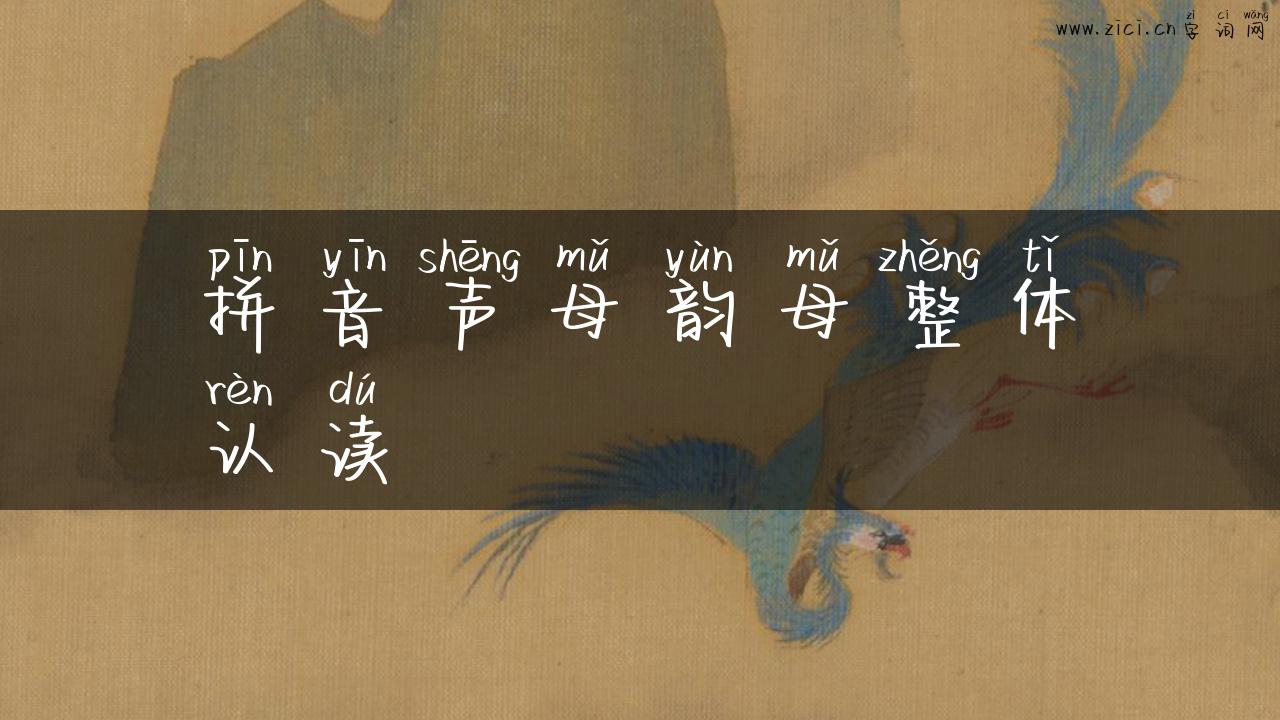 zì cí wǎng
www.zici.cn 字词网
pīn yīn shēng mǔ yùn mǔ zhěng tǐ
拼音声母韵母整体
rèn dú
认读